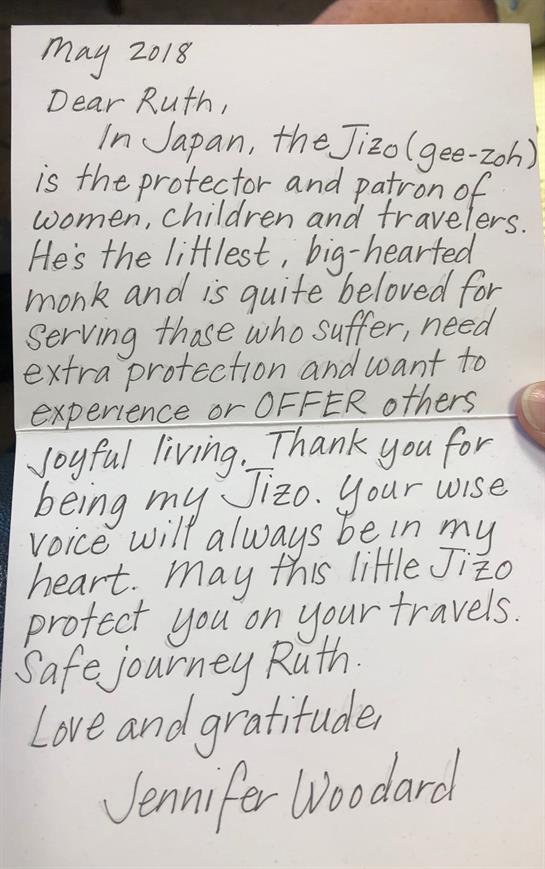 May 2018
Dear Ruth,
In Japan, the Jizo (gee-zoh)
is the protector and patron of
women, children and travelers.
He's the littlest, big-hearted
monk and is quite beloved for
serving those who suffer, need
extra protection and want to
experience or OFFER others
joyful living. Thank you for
being my Jizo. Your wise
voice will always be in my
heart. May this little Jizo
protect you on your travels.
Safe journey Ruth.
Love and gratitude,
Jennifer Woodard